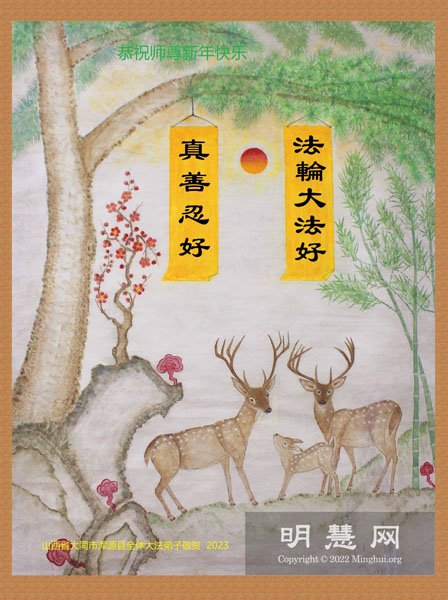 恭祝师尊新年快乐
法輪大法好
真善忍好
山西省大同市浑源县全体大法弟子敬贺 2023
明慧网
Copyright © 2022 Minghui.org